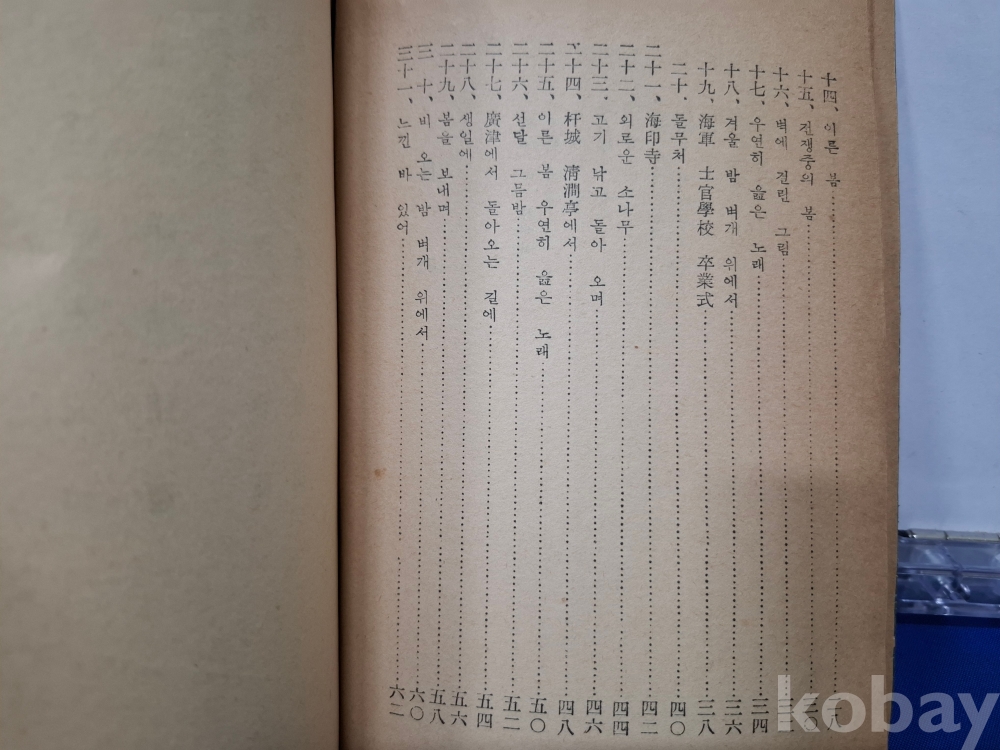 十四、이른 봄 二八
十五、전쟁중의 봄 三〇
十六、벽에 걸린 그림
十七、우연히 읊은 노래 三四
十八、겨울 밤 벼개 위에서 三六
十九、海軍 士官學校 卒業式 三八
二十、돌무처 四〇
二十一、海印寺 四二
二十二、외로운 소나무 四四
二十三、고기 낚고 돌아 오며 四六
二十四、杆城 淸澗亭에서 四八
二十五、이른 봄 우연히 읊은 노래 五〇
二十六、섣달 그믐밤 五二
二十七、廣津에서 돌아오는 길에 五四
二十八、생일에 五六
二十九、봄을 보내며 五八
三 十、비 오는 밤 벼개 위에서 六〇
三十一、느낀 바 있어 六二
kobay